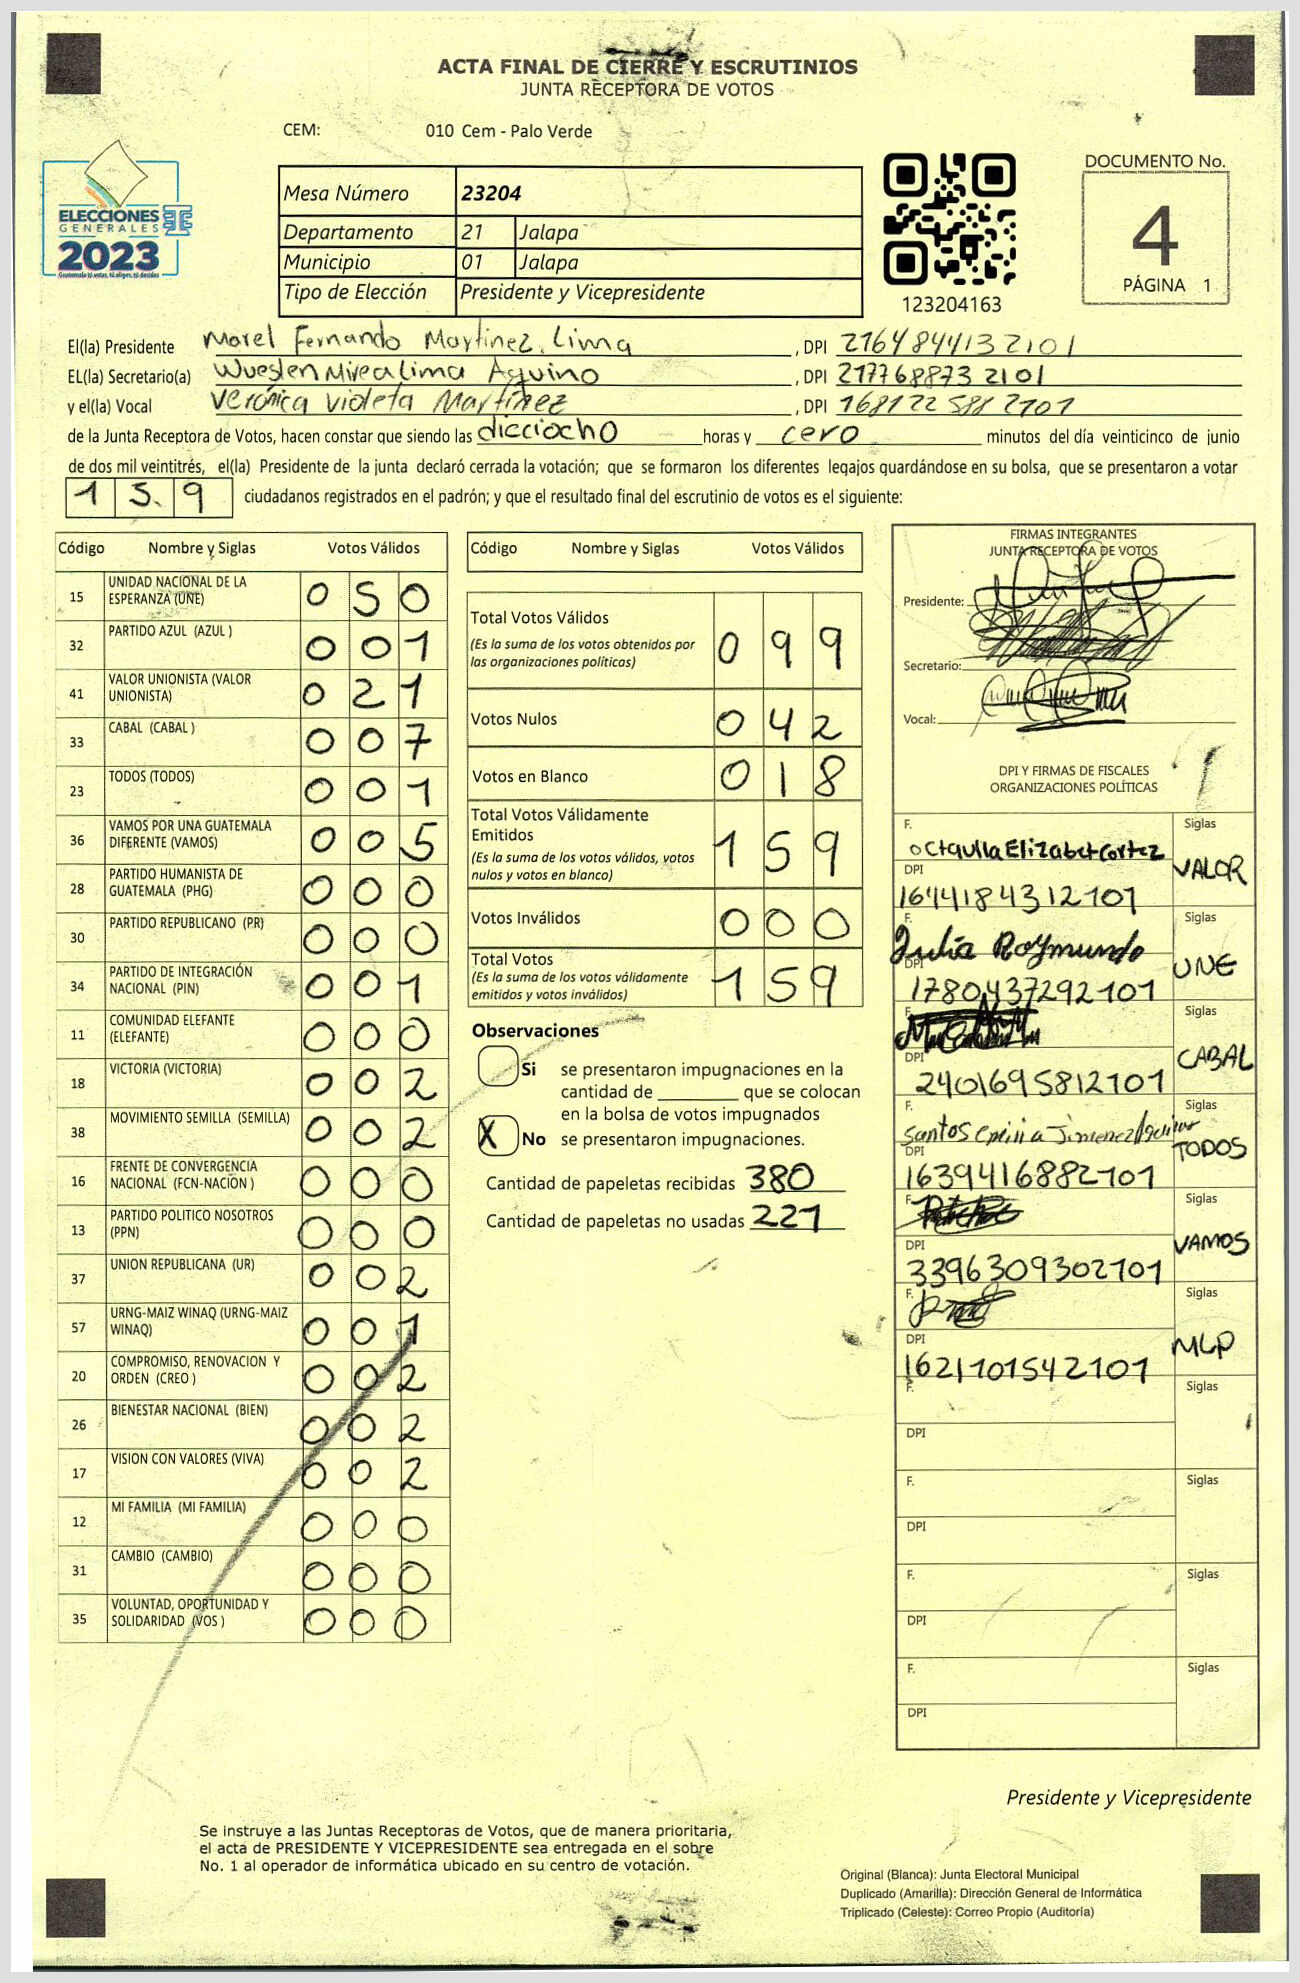 ACTA FINAL DE CIERRE Y ESCRUTINIOS
JUNTA RECEPTORA DE VOTOS
CEM: 010 Cem - Palo Verde
ELECCIONES
GENERALES
2023
Guatemala tú votas, tú eliges, tú decides
Mesa Número 23204
Departamento 21 Jalapa
Municipio 01 Jalapa
Tipo de Elección Presidente y Vicepresidente
123204163
DOCUMENTO No.
4
PÁGINA 1
El(la) Presidente Morel Fernando Martinez Lima, DPI 2164844132101
EL(la) Secretario(a) Wueslen Mirea Lima Aquino, DPI 2177688732101
y el(la) Vocal Verónica Violeta Martínez, DPI 1681225882101
de la Junta Receptora de Votos, hacen constar que siendo las dieciocho horas y cero minutos del día veinticinco de junio
de dos mil veintitrés, el(la) Presidente de la junta declaró cerrada la votación; que se formaron los diferentes legajos guardándose en su bolsa, que se presentaron a votar
1 5. 9 ciudadanos registrados en el padrón; y que el resultado final del escrutinio de votos es el siguiente:
Código Nombre y Siglas Votos Válidos
15 UNIDAD NACIONAL DE LA ESPERANZA (UNE) 0 5 0
32 PARTIDO AZUL (AZUL ) 0 0 1
41 VALOR UNIONISTA (VALOR UNIONISTA) 0 2 1
33 CABAL (CABAL ) 0 0 7
23 TODOS (TODOS) 0 0 1
36 VAMOS POR UNA GUATEMALA DIFERENTE (VAMOS) 0 0 5
28 PARTIDO HUMANISTA DE GUATEMALA (PHG) 0 0 0
30 PARTIDO REPUBLICANO (PR) 0 0 0
34 PARTIDO DE INTEGRACIÓN NACIONAL (PIN) 0 0 1
11 COMUNIDAD ELEFANTE (ELEFANTE) 0 0 0
18 VICTORIA (VICTORIA) 0 0 2
38 MOVIMIENTO SEMILLA (SEMILLA) 0 0 2
16 FRENTE DE CONVERGENCIA NACIONAL (FCN-NACION ) 0 0 0
13 PARTIDO POLITICO NOSOTROS (PPN) 0 0 0
37 UNION REPUBLICANA (UR) 0 0 2
57 URNG-MAIZ WINAQ (URNG-MAIZ WINAQ) 0 0 1
20 COMPROMISO, RENOVACION Y ORDEN (CREO ) 0 0 2
26 BIENESTAR NACIONAL (BIEN) 0 0 2
17 VISION CON VALORES (VIVA) 0 0 2
12 MI FAMILIA (MI FAMILIA) 0 0 0
31 CAMBIO (CAMBIO) 0 0 0
35 VOLUNTAD, OPORTUNIDAD Y SOLIDARIDAD (VOS ) 0 0 0
Código Nombre y Siglas Votos Válidos
Total Votos Válidos
(Es la suma de los votos obtenidos por
las organizaciones políticas) 0 9 9
Votos Nulos 0 4 2
Votos en Blanco 0 1 8
Total Votos Válidamente
Emitidos
(Es la suma de los votos válidos, votos
nulos y votos en blanco) 1 5 9
Votos Inválidos 0 0 0
Total Votos
(Es la suma de los votos válidamente
emitidos y votos inválidos) 1 5 9
Observaciones
Si se presentaron impugnaciones en la
cantidad de ________ que se colocan
en la bolsa de votos impugnados
X No se presentaron impugnaciones.
Cantidad de papeletas recibidas 380
Cantidad de papeletas no usadas 221
FIRMAS INTEGRANTES
JUNTA RECEPTORA DE VOTOS
Presidente:
Secretario:
Vocal:
DPI Y FIRMAS DE FISCALES
ORGANIZACIONES POLÍTICAS
F. Octaulla Elizabet Cortez Siglas VALOR
DPI 1644184312101
F. Julia Raymundo Siglas UNE
DPI 1780437292101
F. Siglas CABAL
DPI 2401695812101
F. Santos Jimenez Siglas TODOS
DPI 1639416882101
F. Siglas VAMOS
DPI 3396309302101
F. Siglas MLP
DPI 1621101542101
F. Siglas
DPI
F. Siglas
DPI
F. Siglas
DPI
F. Siglas
DPI
Presidente y Vicepresidente
Se instruye a las Juntas Receptoras de Votos, que de manera prioritaria,
el acta de PRESIDENTE Y VICEPRESIDENTE sea entregada en el sobre
No. 1 al operador de informática ubicado en su centro de votación.
Original (Blanca): Junta Electoral Municipal
Duplicado (Amarilla): Dirección General de Informática
Triplicado (Celeste): Correo Propio (Auditoría)